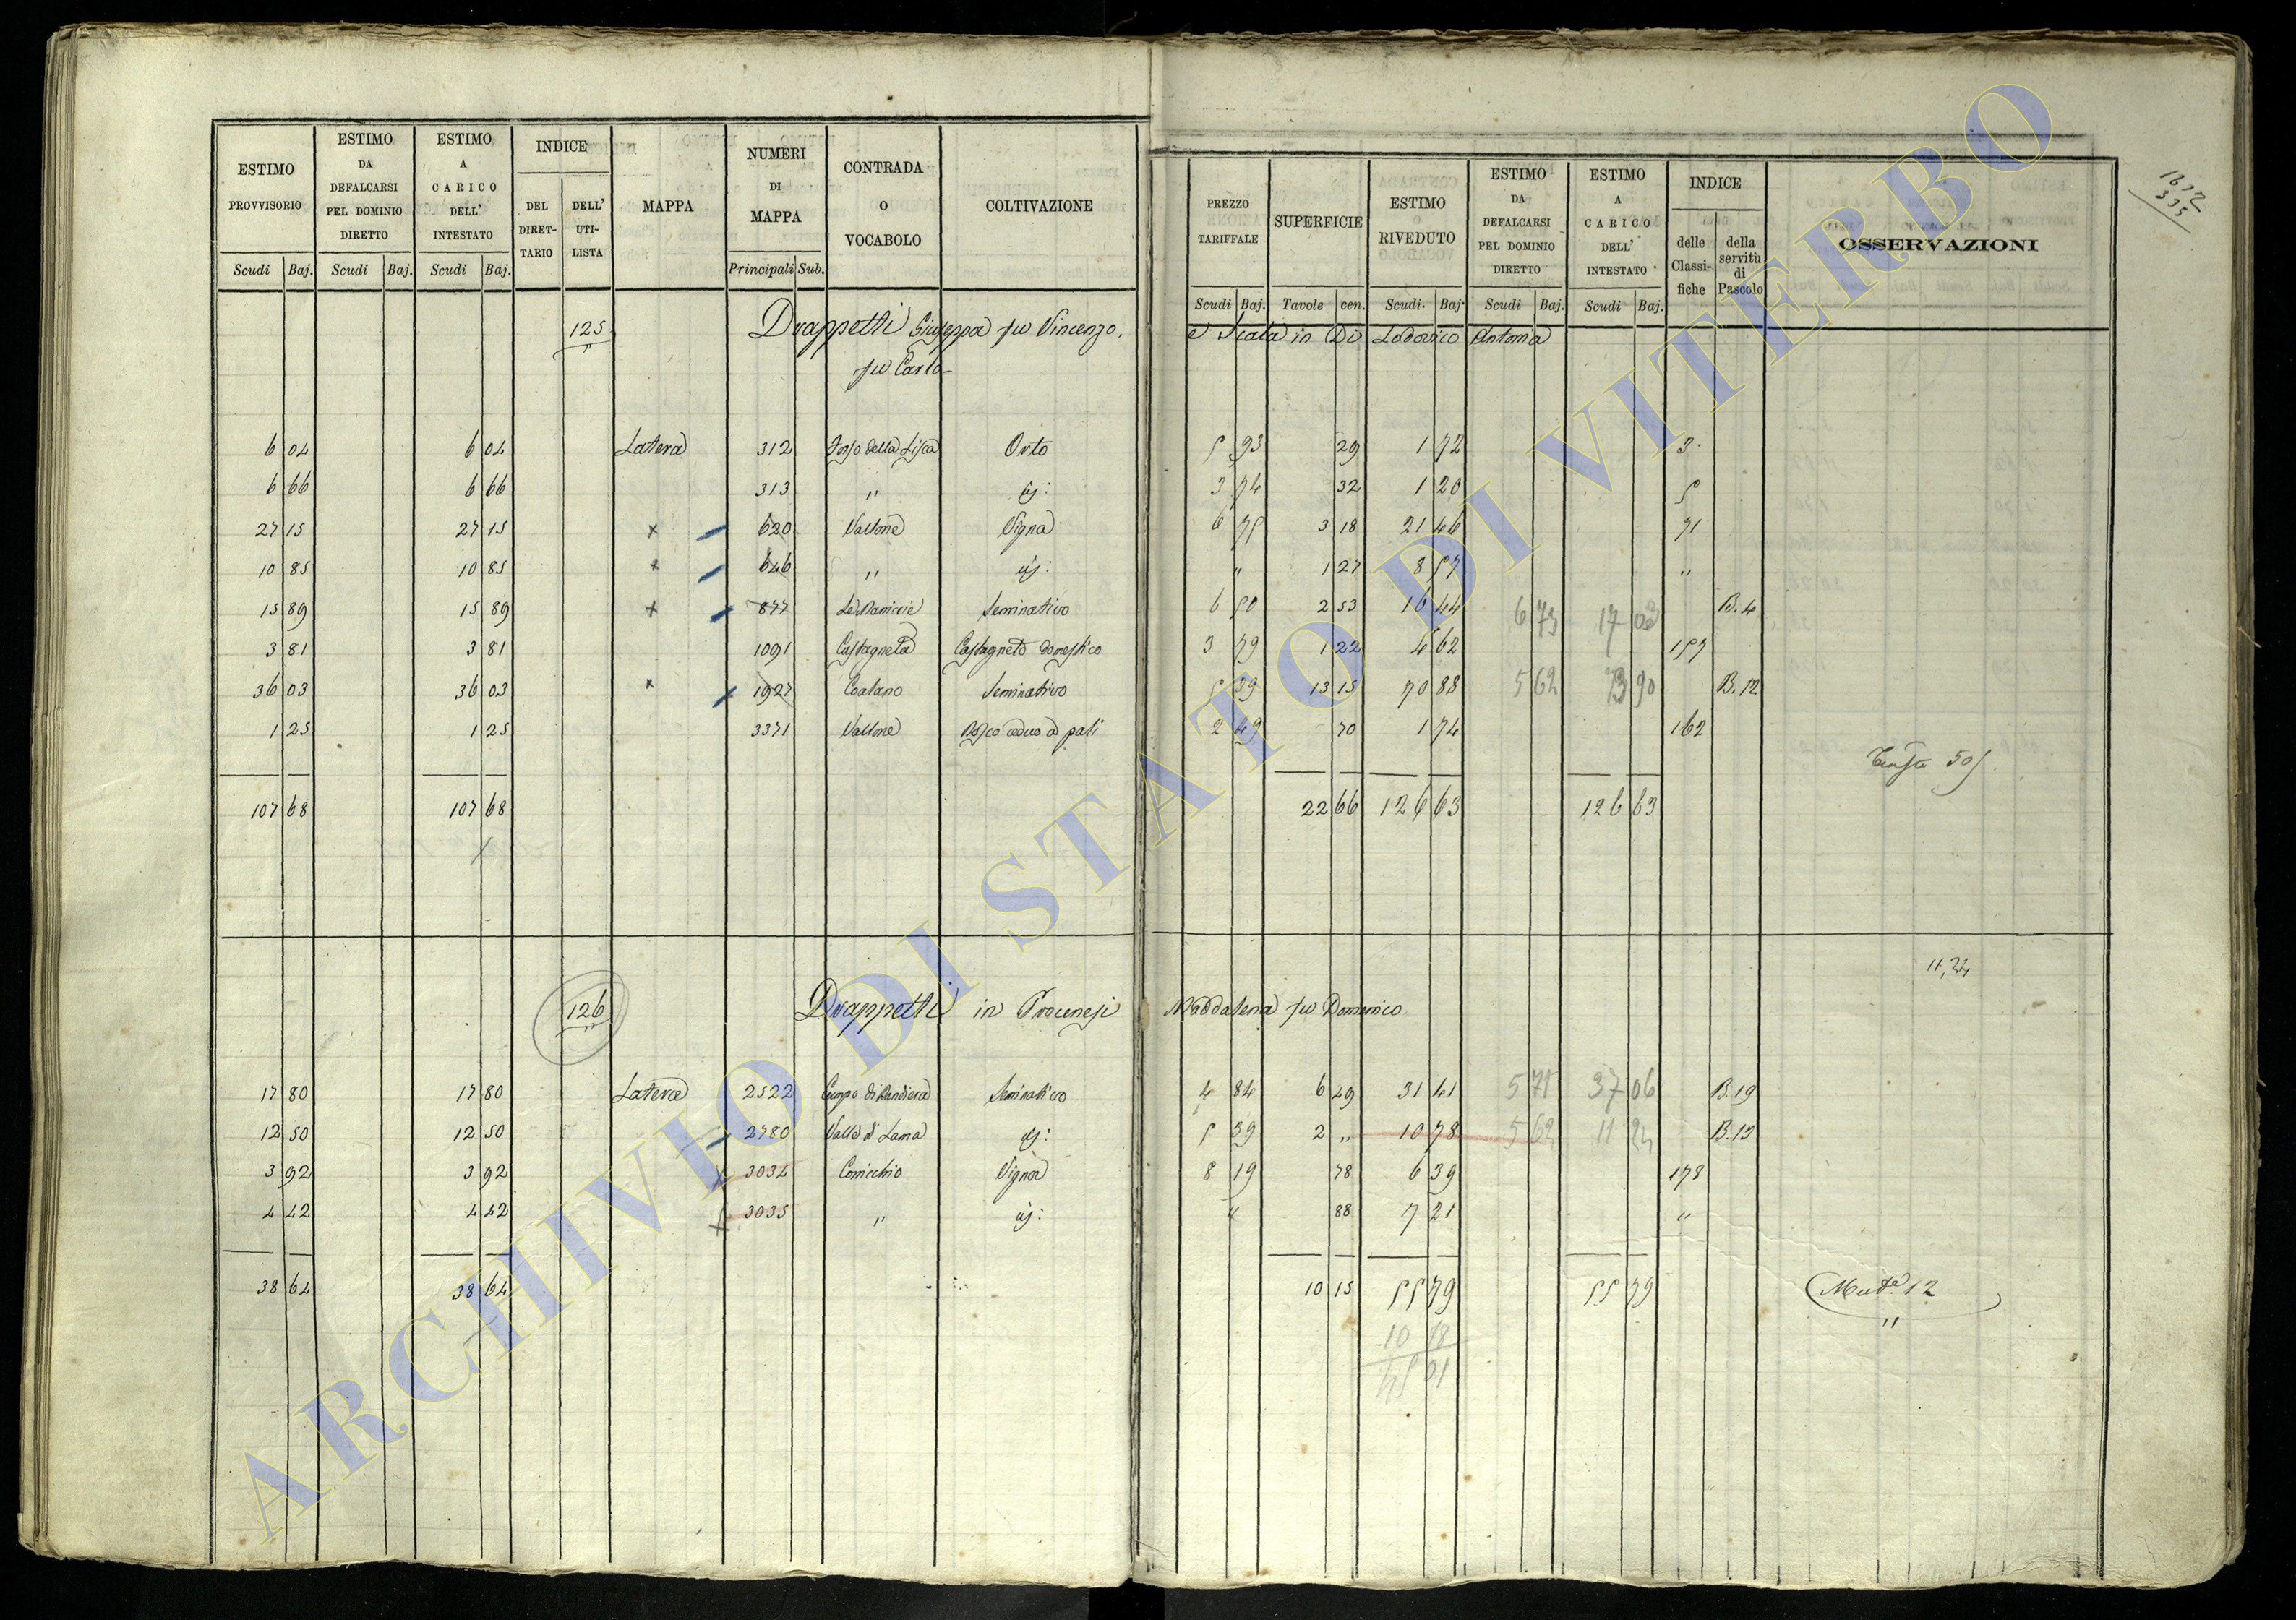 ESTIMO PROVVISORIO | ESTIMO DA DEFALCARSI PEL DOMINIO DIRETTO | ESTIMO A CARICO DELL' INTESTATO | INDICE DEL DIRET-TARIO | DELL' UTI-LISTA | MAPPA | NUMERI DI MAPPA | CONTRADA O VOCABOLO | COLTIVAZIONE | PREZZO TARIFFALE | SUPERFICIE | ESTIMO RIVEDUTO | ESTIMO DA DEFALCARSI PEL DOMINIO DIRETTO | ESTIMO A CARICO DELL' INTESTATO | INDICE delle Classi-fiche | della servitù di Pascolo | OSSERVAZIONI
Scudi Baj. | Scudi Baj. | Scudi Baj. | Principali Sub. | Scudi Baj. | Tavole cen. | Scudi. Baj. | Scudi Baj. | Scudi Baj.
125 Drappetti Giuseppa fu Vincenzo, e Scala in Di Lodovico Antonia
fu Carlo
6 04 | 6 04 | Latera | 312 | Fosso della Lisca | Orto | 5 93 | 29 | 1 72 | 3
6 66 | 6 66 | 313 | " | id: | 3 74 | 32 | 1 20 | 5
27 15 | 27 15 | x | 620 | Vallone | Vigna | 6 75 | 3 18 | 21 46 | 71
10 85 | 10 85 | x | 646 | " | id: | " | 1 27 | 8 57 | "
15 89 | 15 89 | x | 877 | Seminativo | 6 50 | 2 53 | 16 44 | 6 75 | 17 08 | B. 4
3 81 | 3 81 | 1091 | Castagneta | Castagneto domestico | 3 79 | 1 22 | 4 62 | 157
36 03 | 36 03 | x | 1927 | Coatano | Seminativo | 5 39 | 13 15 | 70 88 | 5 62 | 73 90 | B. 12
1 25 | 1 25 | 3371 | Vallone | Bosco ceduo a pali | 2 49 | 70 | 1 74 | 162
107 68 | 107 68 | 22 66 | 126 63 | 126 63
11,24
126 Drappetti in Procenesi Maddalena fu Domenico
17 80 | 17 80 | Latera | 2522 | Campo di Bandiera | Seminativo | 4 84 | 6 49 | 31 41 | 5 71 | 37 06 | B. 19
12 50 | 12 50 | 2780 | Valle d' Lama | id: | 5 39 | 2 " | 10 78 | 5 62 | 11 24 | B. 13
3 92 | 3 92 | x | 3034 | Cornicchio | Vigna | 8 19 | 78 | 6 39 | 178
4 42 | 4 42 | x | 3035 | " | id: | " | 88 | 7 21 | "
38 64 | 38 64 | 10 15 | 55 79 | 55 79 | Mut.e 12
10 78
45 01
ARCHIVIO DI STATO DI VITERBO